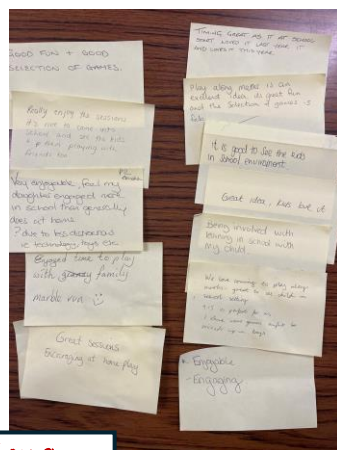 GOOD FUN + GOOD
SELECTION OF GAMES.
Really enjoy the sessions
it's nice to come into
school and see the kids
playing with
friends too
Very enjoyable, feel my
daughter engaged more
in school than generally
does at home
? due to less distractions
ie technology, toys etc
Enjoyed time to play
with family
marble run
Great sessions
Encouraging at home play
TIMING GREAT AS IT AT SCHOOL
START. LOVED IT LAST YEAR
AND LOVED IT THIS YEAR.
Play along maths is an
excellent idea. Its great fun
and the selection of games is
It is good to see the kids
in school environment
Great idea, kids love it
Being involved with
learning in school with
my child
We love coming to play along
maths, great to see child in
school setting.
is perfect for us
games
• Enjoyable
- Engaging